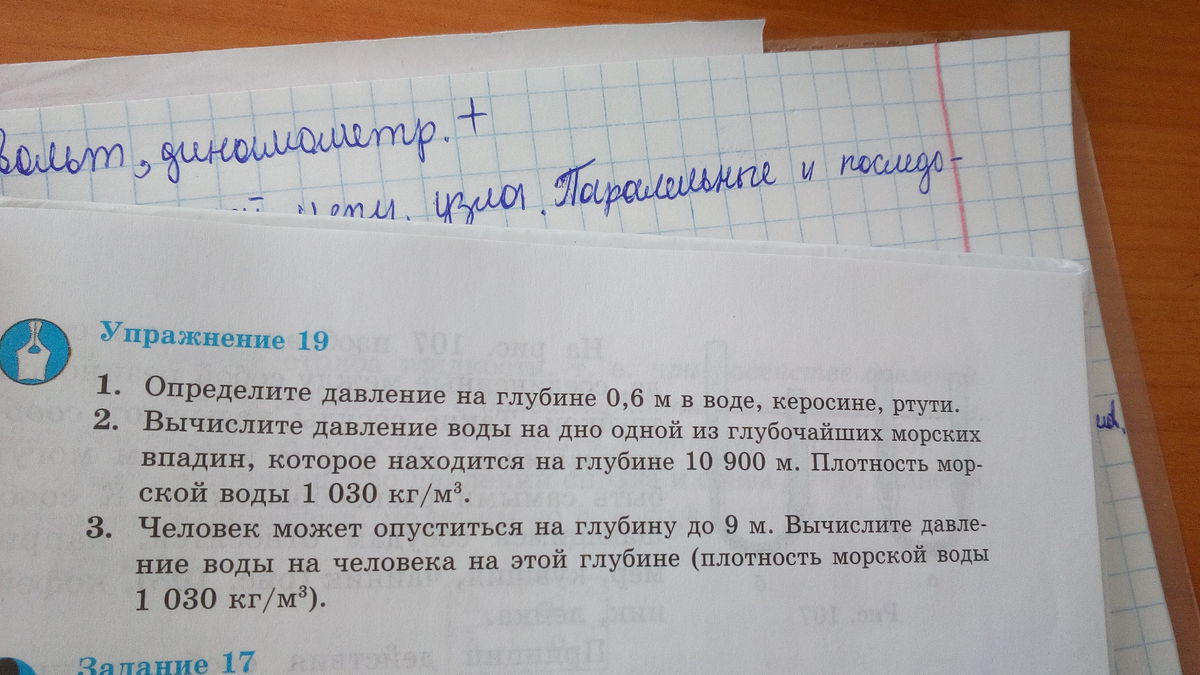 вольт, динамометр. +
цепи. узла. Паралельные и последо-
Упражнение 19
1. Определите давление на глубине 0,6 м в воде, керосине, ртути.
2. Вычислите давление воды на дно одной из глубочайших морских
впадин, которое находится на глубине 10 900 м. Плотность мор-
ской воды 1 030 кг/м³.
3. Человек может опуститься на глубину до 9 м. Вычислите давле-
ние воды на человека на этой глубине (плотность морской воды
1 030 кг/м³).
Задание 17